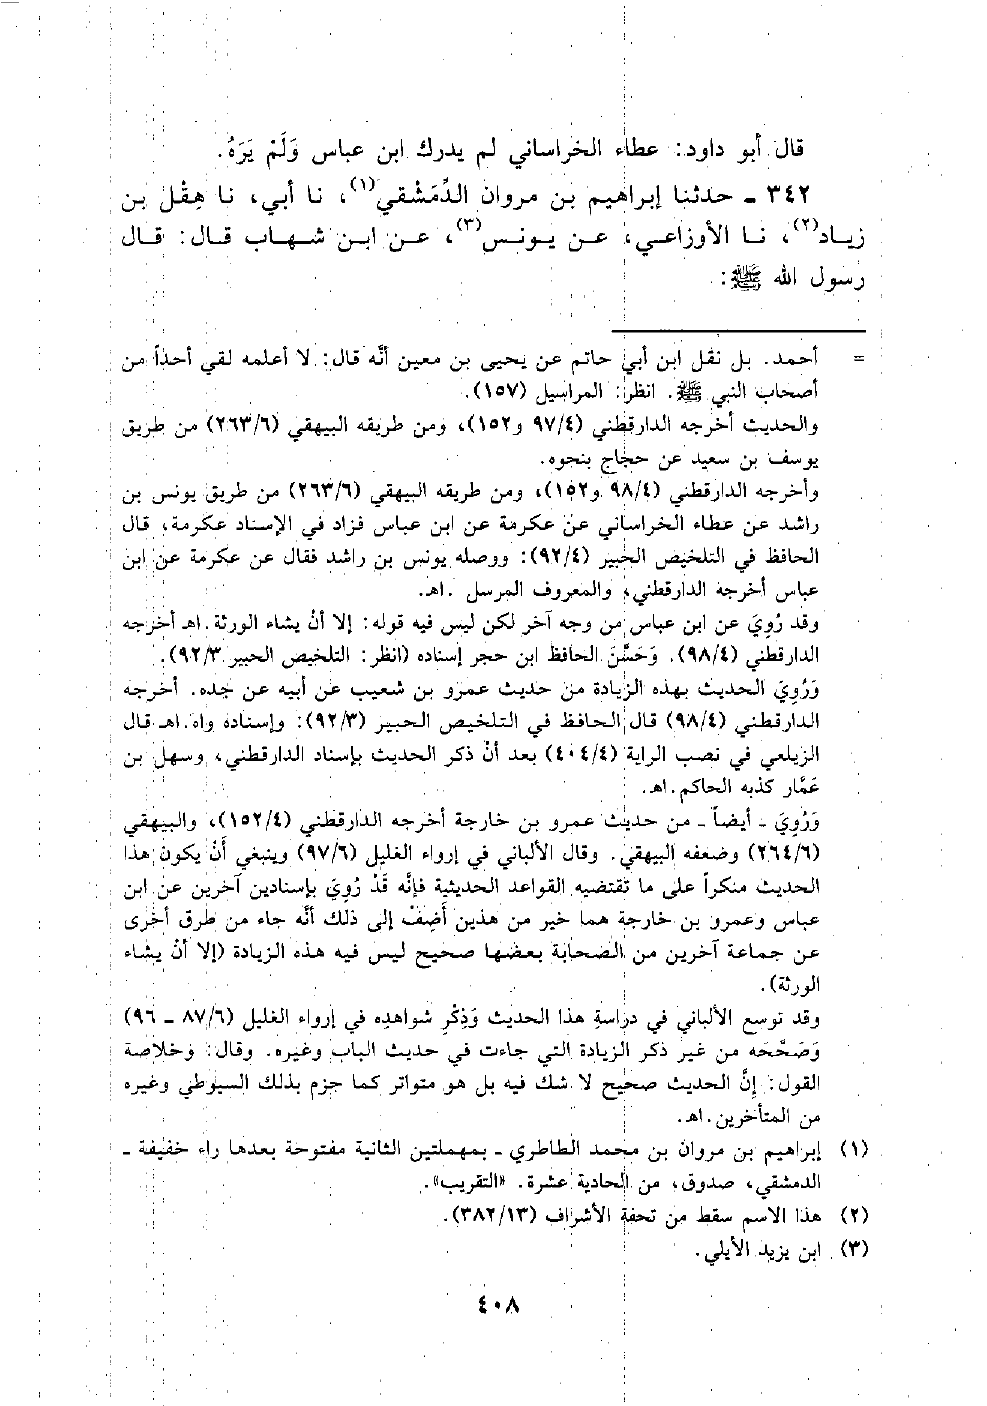 قال أبو داود: عطاء الخراساني لم يدرك ابن عباس وَلَمْ يَرَهُ.
٣٤٢ ـ حدثنا إبراهيم بن مروان الدِّمَشْقي(١)، نا أبي، نا هِقْل بن
زياد(٢)، نا الأوزاعي، عن يونس(٣)، عن ابن شهاب قال: قال
رسول الله ﷺ:
= أحمد. بل نقل ابن أبي حاتم عن يحيى بن معين أنَّه قال: لا أعلمه لقي أحداً من
أصحاب النبي ﷺ. انظر: المراسيل (١٥٧).
والحديث أخرجه الدارقطني (٩٧/٤ و١٥٢)، ومن طريقه البيهقي (٢٦٣/٦) من طريق
يوسف بن سعيد عن حجاج بنحوه.
وأخرجه الدارقطني (٩٨/٤ و١٥٢)، ومن طريقه البيهقي (٢٦٣/٦) من طريق يونس بن
راشد عن عطاء الخراساني عن عكرمة عن ابن عباس فزاد في الإسناد عكرمة، قال
الحافظ في التلخيص الحبير (٩٢/٤): ووصله يونس بن راشد فقال عن عكرمة عن ابن
عباس أخرجه الدارقطني، والمعروف المرسل .اهـ.
وقد رُوِيَ عن ابن عباس من وجه آخر لكن ليس فيه قوله: إلا أنْ يشاء الورثة.اهـ أخرجه
الدارقطني (٩٨/٤). وَحَسَّنَ الحافظ ابن حجر إسناده (انظر: التلخيص الحبير ٩٢/٣).
وَرُوِيَ الحديث بهذه الزيادة من حديث عمرو بن شعيب عن أبيه عن جده. أخرجه
الدارقطني (٩٨/٤) قال الحافظ في التلخيص الحبير (٩٢/٣): وإسناده واه.اهـ قال
الزيلعي في نصب الراية (٤٠٤/٤) بعد أنْ ذكر الحديث بإسناد الدارقطني، وسهل بن
عَمَّار كذبه الحاكم.اهـ.
وَرُوِيَ ـ أيضاً ـ من حديث عمرو بن خارجة أخرجه الدارقطني (١٥٢/٤)، والبيهقي
(٢٦٤/٦) وضعفه البيهقي. وقال الألباني في إرواء الغليل (٩٧/٦) وينبغي أَنْ يكون هذا
الحديث منكراً على ما تقتضيه القواعد الحديثية فإنَّه قَدْ رُوِيَ بإسنادين آخرين عن ابن
عباس وعمرو بن خارجة هما خير من هذين أَضِفْ إلى ذلك أنَّه جاء من طرق أخرى
عن جماعة آخرين من الصحابة بعضها صحيح ليس فيه هذه الزيادة (إلا أنْ يشاء
الورثة).
وقد توسع الألباني في دراسةِ هذا الحديث وَذِكْرِ شواهده في إرواء الغليل (٨٧/٦ ـ ٩٦)
وَصَحَّحَه من غير ذكر الزيادة التي جاءت في حديث الباب وغيره. وقال: وخلاصة
القول: إنَّ الحديث صحيح لا شك فيه بل هو متواتر كما جزم بذلك السيوطي وغيره
من المتأخرين.اهـ.
(١) إبراهيم بن مروان بن محمد الطاطري ـ بمهملتين الثانية مفتوحة بعدها راء خفيفة ـ
الدمشقي، صدوق، من الحادية عشرة. «التقريب».
(٢) هذا الاسم سقط من تحفة الأشراف (٣٨٢/١٣).
(٣) ابن يزيد الأيلي.
٤٠٨